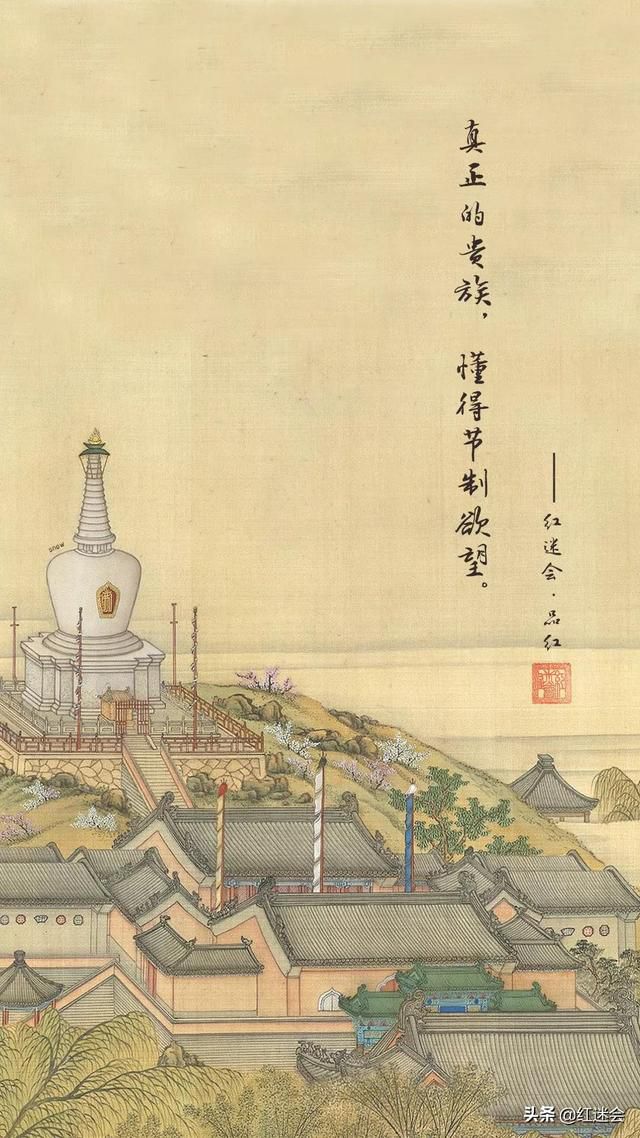 真正的贵族，懂得节制欲望。
——红迷会·品红
snow
头条 @红迷会